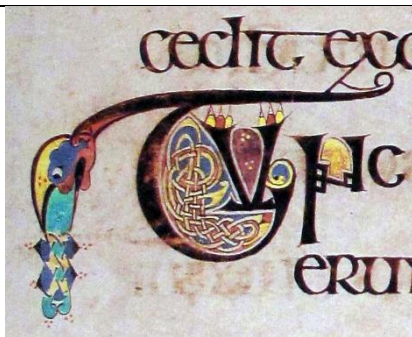 cedit exc
Tunc
erun